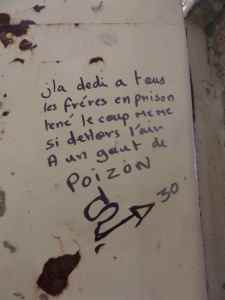 j'la dedi a tous
les fréres en prison
tené le coup même
si dehors l'air
A un gout de
POIZON
30